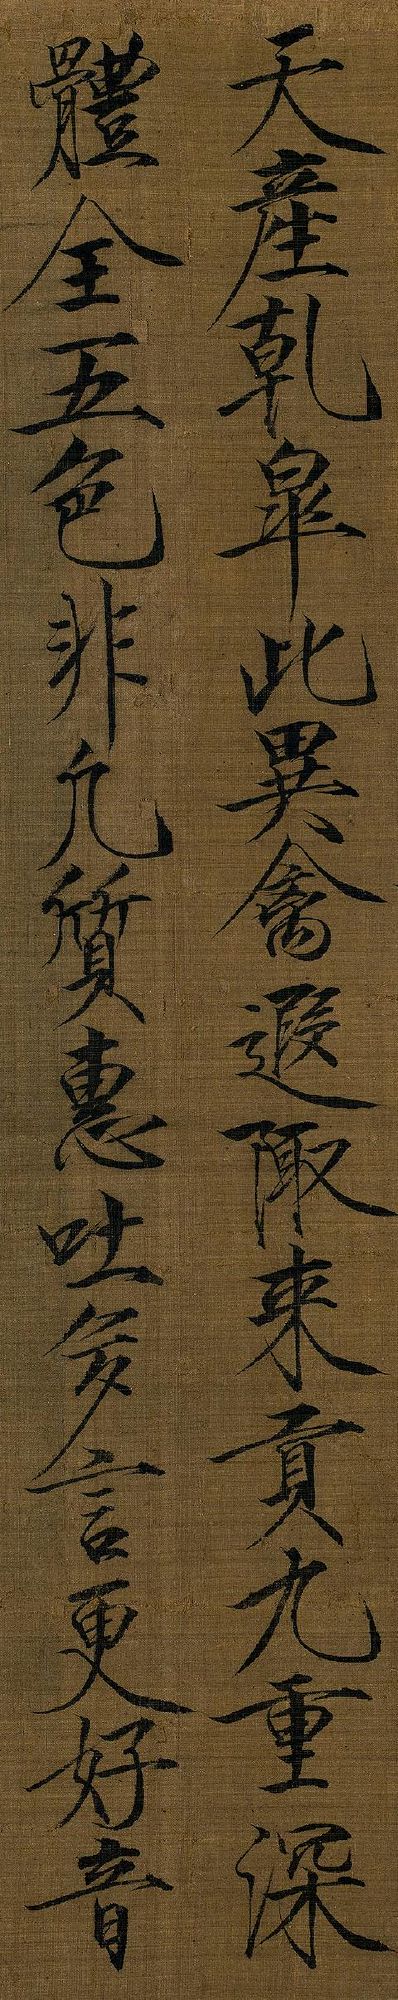 天產乾皐此異禽遐陬来貢九重深
體全五色非凡質惠吐多言更好音